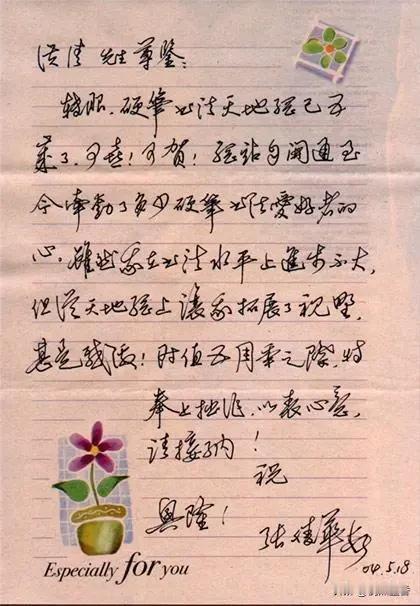 洪清 先生尊鉴:
转眼,硬笔书法天地网已五
岁了,可喜!可贺!网站自开通至
今牵动了多少硬笔书法爱好者的
心。虽然我在书法水平上进步不大,
但从天地网上让我拓展了视野,
甚是感激!时值五周年之际,特
奉上拙作,以表心意,
请接纳!
祝
兴隆!
张 華
04.5.18
Especially for you